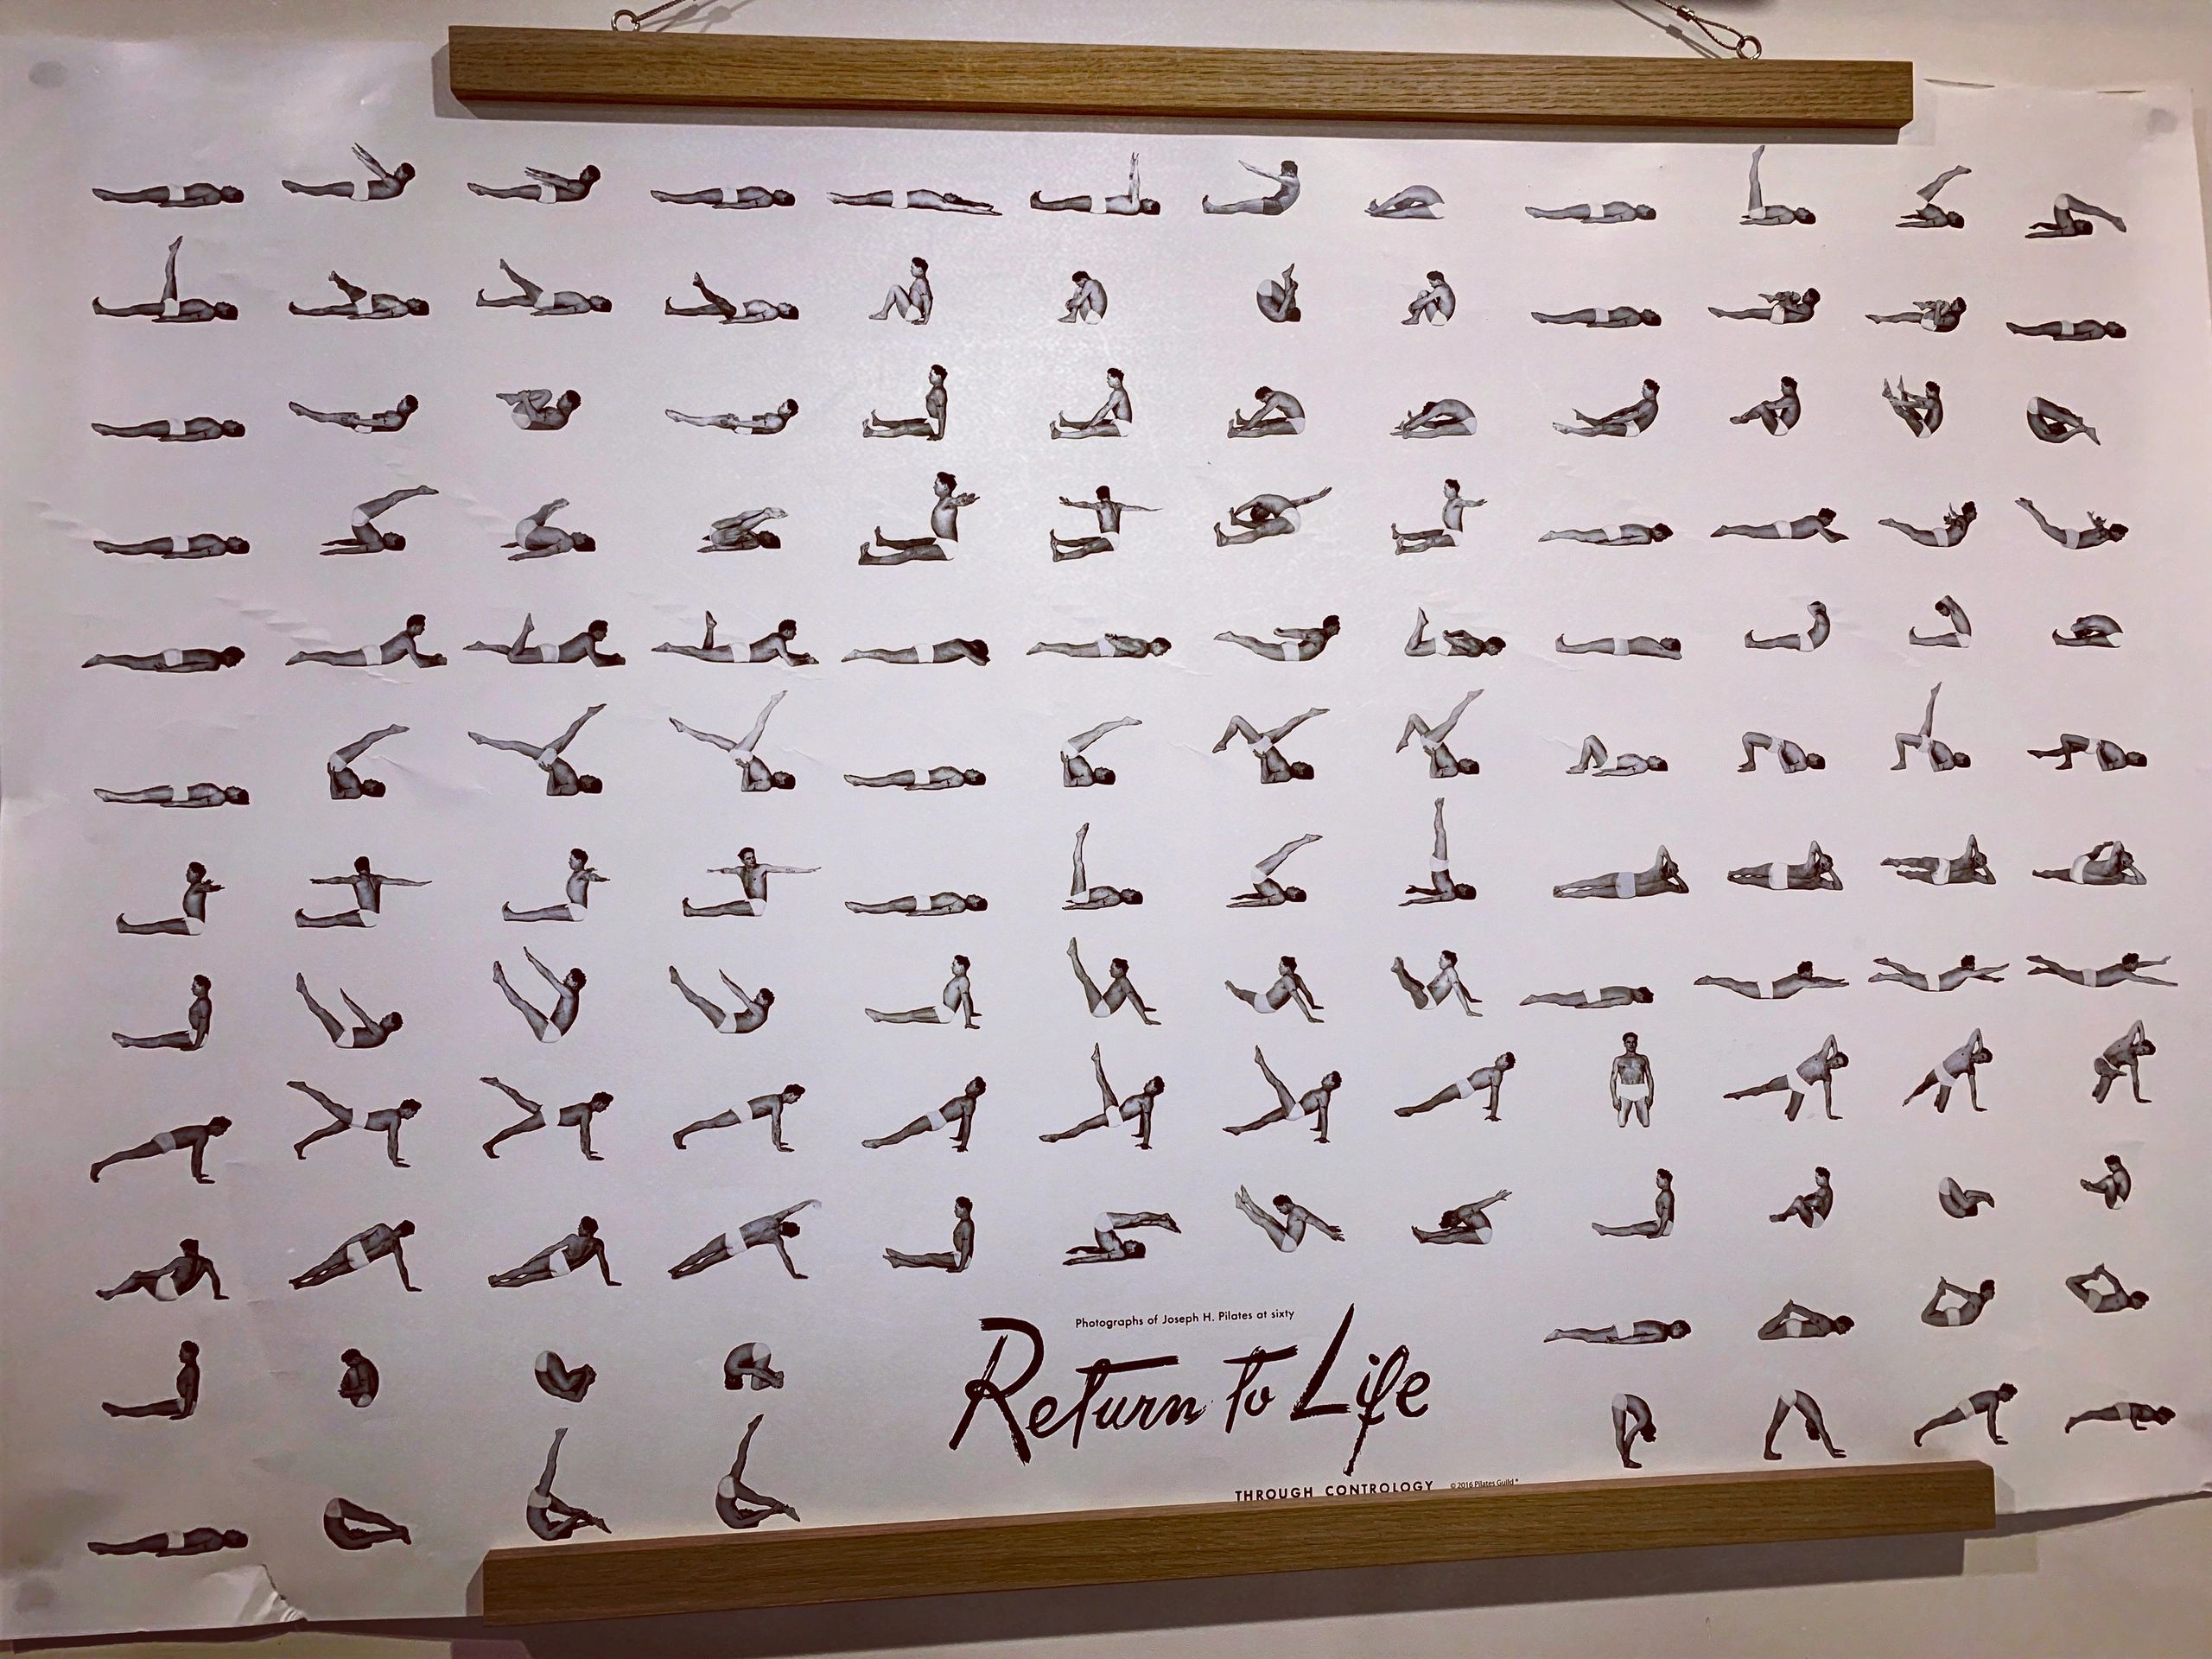 Photographs of Joseph H. Pilates at sixty
Return to Life
THROUGH CONTROLOGY
© 2016 Pilates Guild®